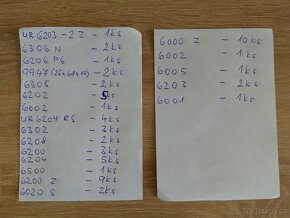 UR 6203 - 2 Z - 1ks
6306 N - 2ks
6206 P6 - 1ks
9947 (25x68x19) - 2ks
6305 - 2ks
6202 - 5ks
6002 - 1ks
UR 6204 RS - 4ks
6302 - 3ks
6208 - 2ks
6200 - 3ks
6204 - 5ks
6500 - 1ks
6200 Z - 9ks
6020 S - 2ks
6000 Z - 10 ks
6002 - 1ks
6005 - 1ks
6203 - 2ks
6001 - 1ks